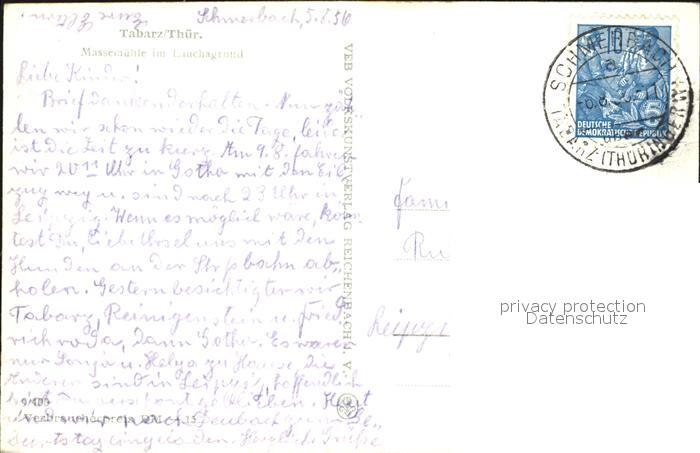 Eure Eltern.
Schmerbach, 5.8.56
Tabarz/Thür.
Massemühle im Lauchagrund
Liebe Kinder!
Brief dankend erhalten. Nun zäh-
len wir schon wieder die Tage, leider
ist die Zeit zu kurz. Am 9.8. fahren
wir 20¹¹ Uhr in Gotha mit den Eil-
zug weg u. sind nach 23 Uhr in
Leipzig. Wenn es möglich wäre, könn
test Du, liebe Ursel uns mit den
Hunden an der Strßbahn ab-
holen. Gestern besichtigten wir
Tabarz, Reinigenstein u. Fried
richroda, dann Gotha. Es waren
nur Sonja u. Helga zu Hause, die
Anderen sind in Leipzig, hoffentlich
Heut
Geburtstag eingeladen. Herzliche Grüße
9/400
Verbraucherpreis DM
VEB VOLKSKUNSTVERLAG REICHENBACH i. V.
SCHMERBACH
TABARZ (THÜRINGERW)
5
DEUTSCHE
DEMOKRATISCHE REPUBLIK
Fami
Ru
Leipzi
privacy protection
Datenschutz